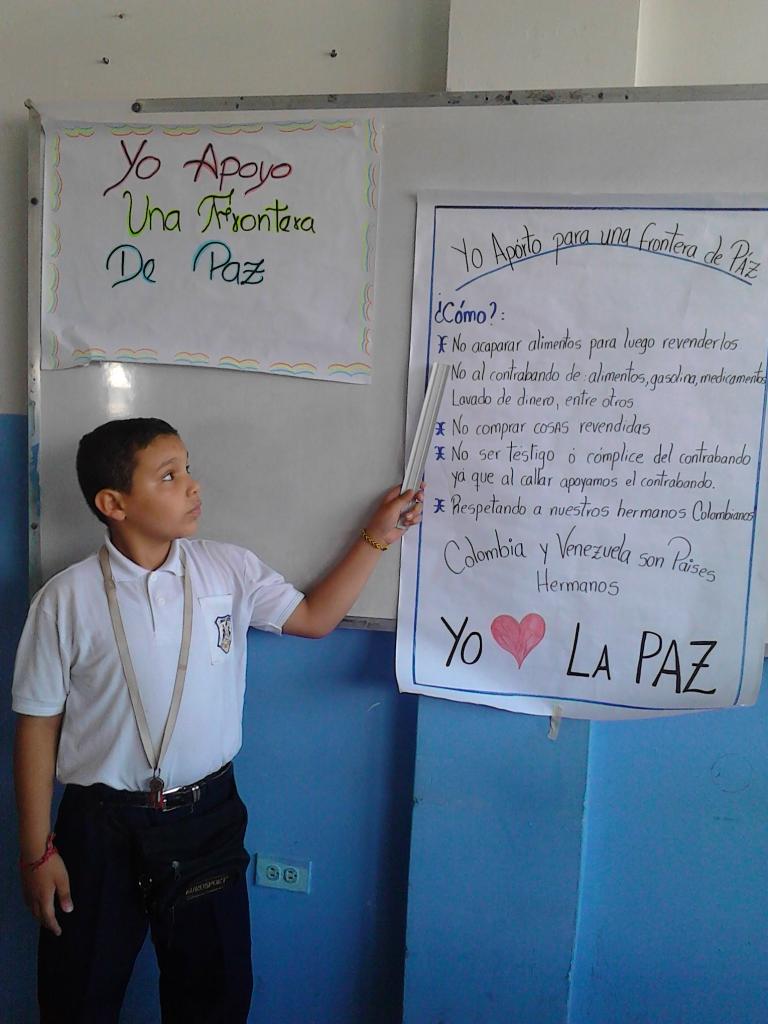 Yo Apoyo
Una Frontera
De Paz
Yo Apórto para una frontera de PÁZ
¿Cómo?:
No acaparar alimentos para luego revenderlos
No al contrabando de: alimentos, gasolina, medicamentos
Lavado de dinero, entre otros
No comprar cosas revendidas
No ser téstigo ó cómplice del contrabando
yá que al callar apoyamos el contrabando.
Respetando a nuestros hermanos Colombianos
Colombia y Venezuela son Paises
Hermanos
Yo ❤ LA PAZ
EUROSPORT